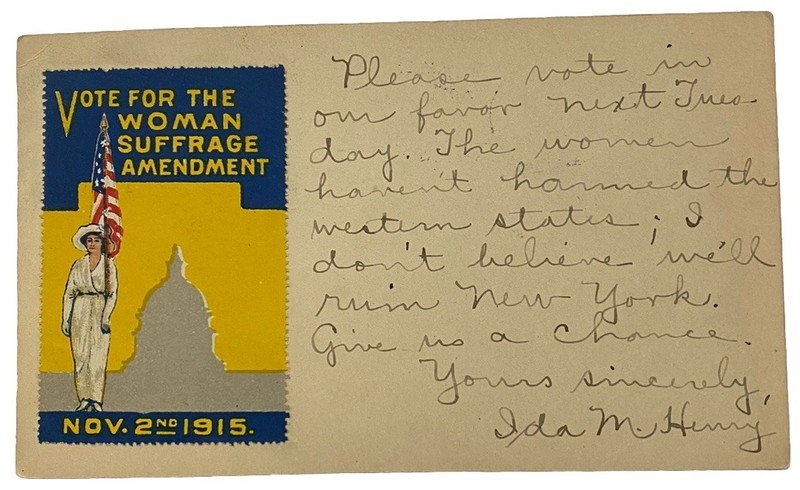 VOTE FOR THE
WOMAN
SUFFRAGE
AMENDMENT
NOV. 2ND 1915.
Please vote in
our favor next Tues-
day. The women
haven't harmed the
western states; I
don't believe we'll
ruin New York.
Give us a chance.
Yours sincerely,
Ida M. Henry